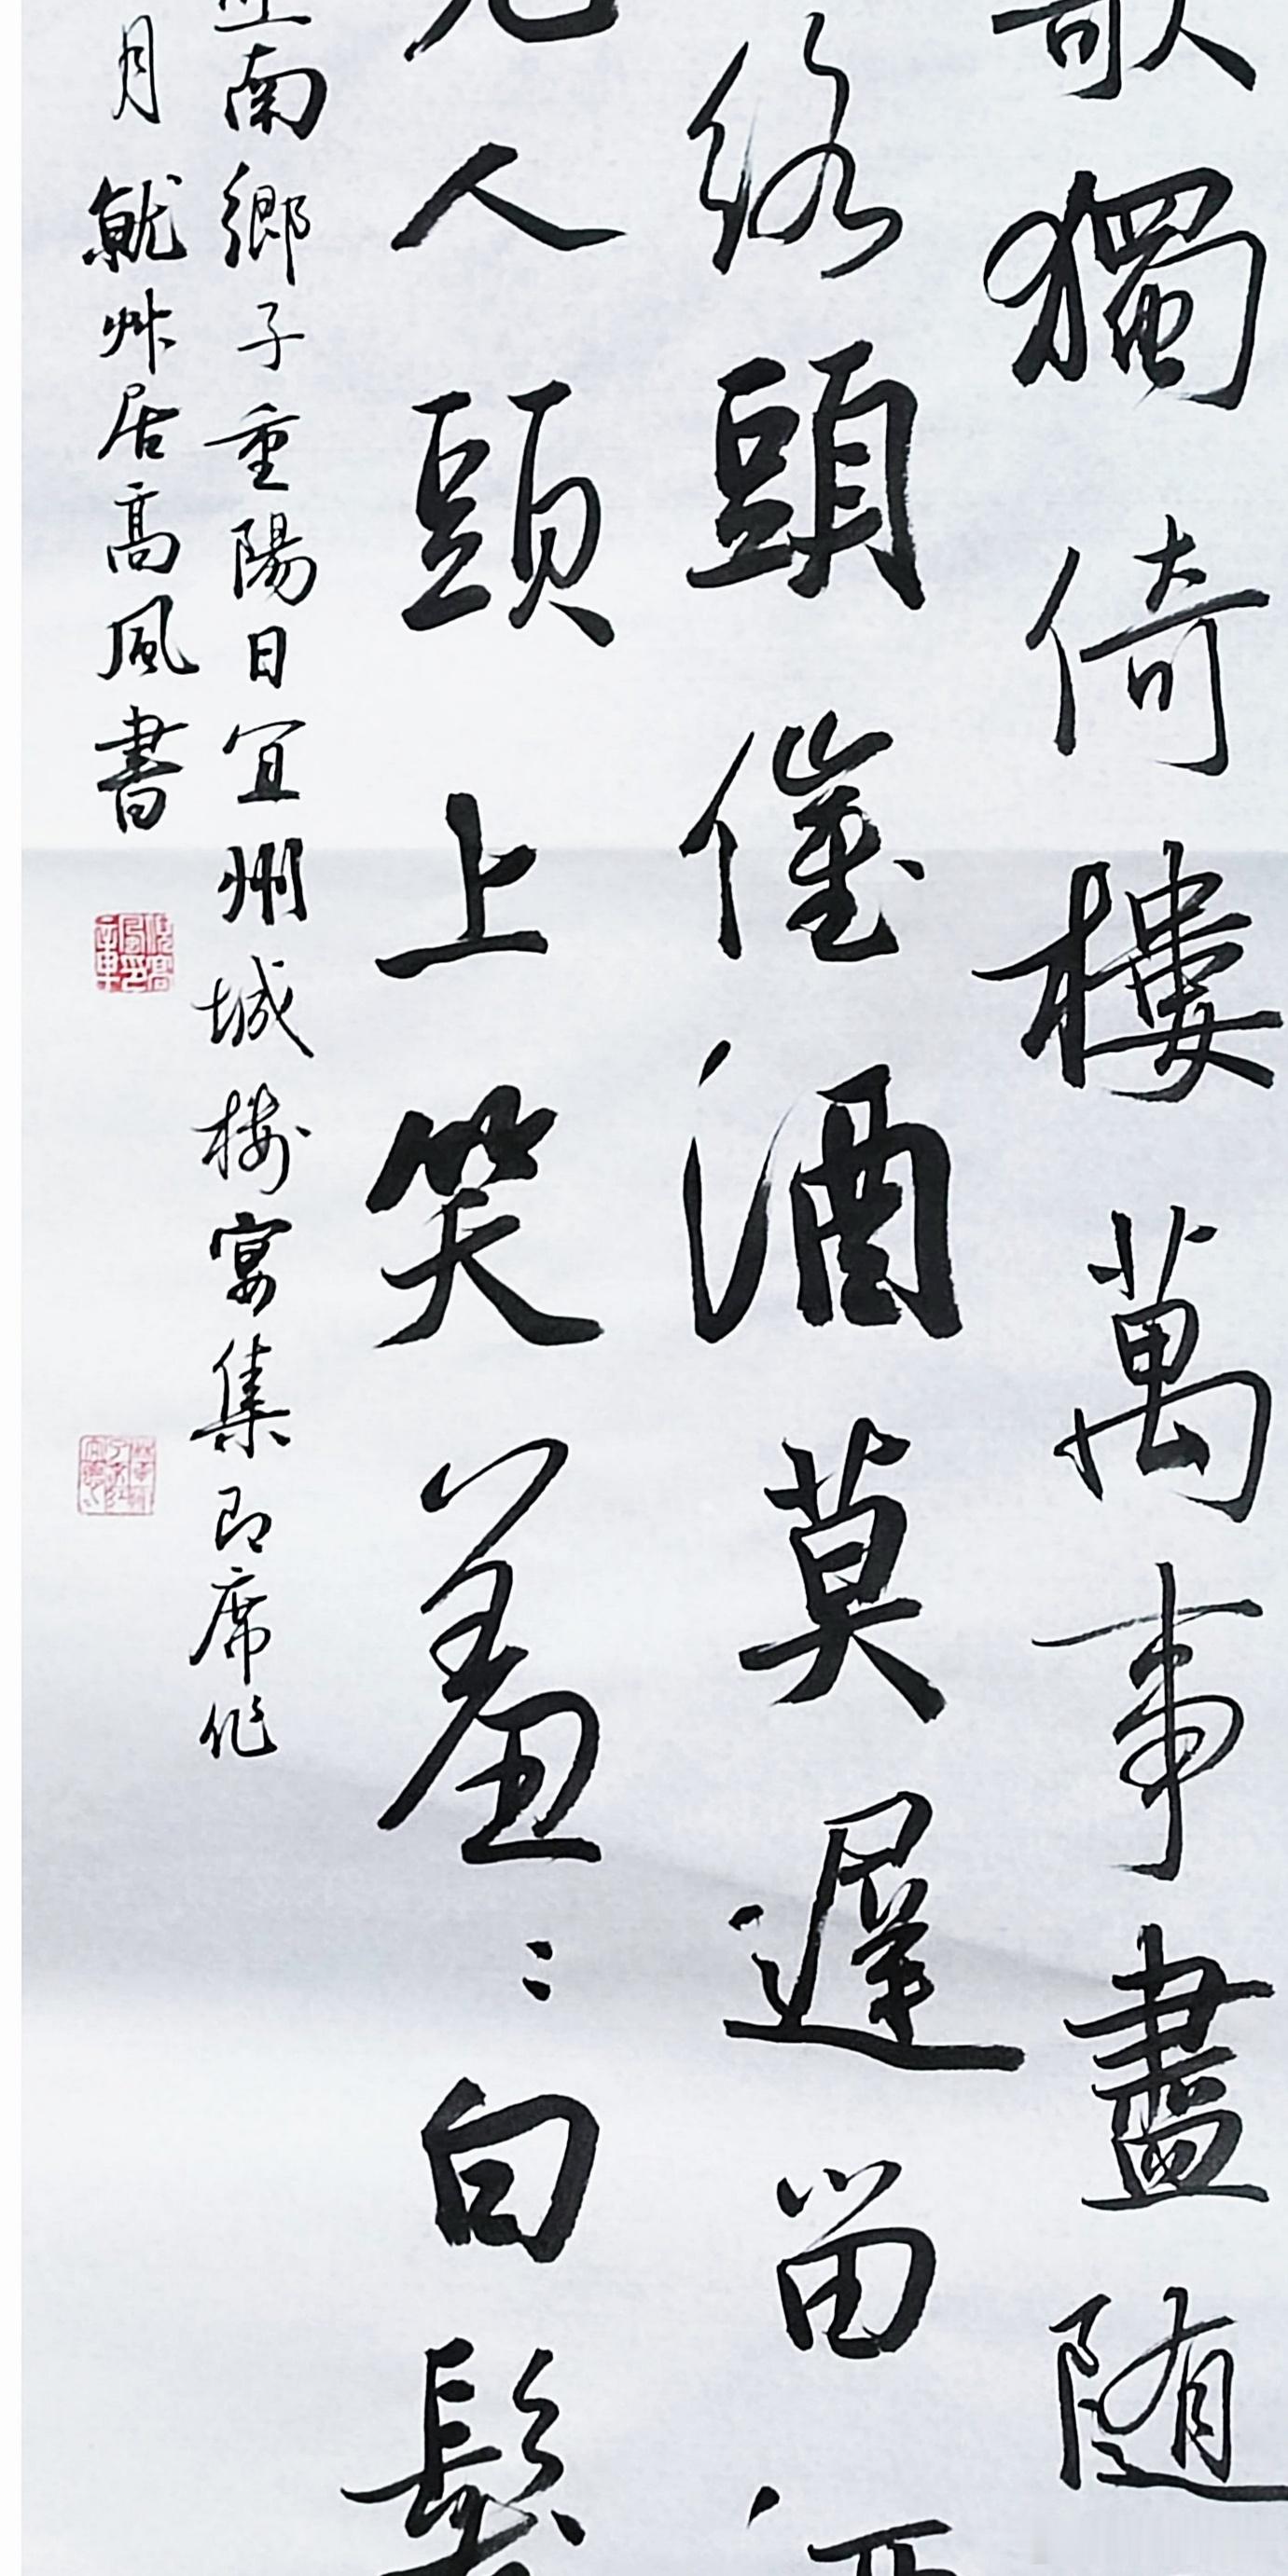 歌獨倚樓萬事盡随
絡頭催酒莫遲留
人頭上笑羞〻白髮
南鄉子重陽日宜州城樓宴集即席作
月就艸居高風書